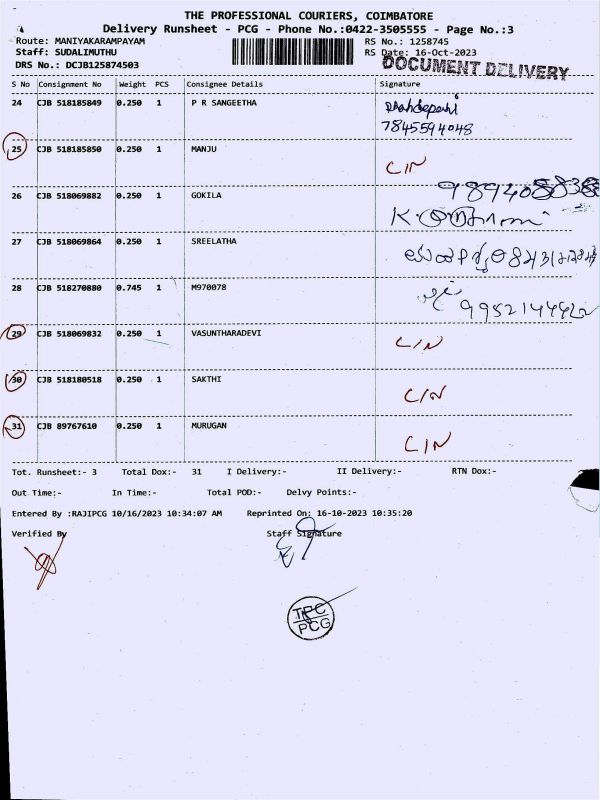 THE PROFESSIONAL COURIERS, COIMBATORE
Delivery Runsheet - PCG - Phone No.:0422-3505555 - Page No.:3
Route: MANIYAKARAMPAYAM RS No.: 1258745
Staff: SUDALIMUTHU RS Date: 16-Oct-2023
DRS No.: DCJB125874503 DOCUMENT DELIVERY
S No Consignment No Weight PCS Consignee Details Signature
24 CJB 518185849 0.250 1 P R SANGEETHA
7845594048
25 CJB 518185850 0.250 1 MANJU C/N
9894088388
26 CJB 518069882 0.250 1 GOKILA
27 CJB 518069864 0.250 1 SREELATHA
28 CJB 518270880 0.745 1 M970078
29 CJB 518069832 0.250 1 VASUNTHARADEVI C/N
30 CJB 518180518 0.250 1 SAKTHI C/N
31 CJB 89767610 0.250 1 MURUGAN C/N
Tot. Runsheet:- 3 Total Dox:- 31 I Delivery:- II Delivery:- RTN Dox:-
Out Time:- In Time:- Total POD:- Delvy Points:-
Entered By :RAJIPCG 10/16/2023 10:34:07 AM Reprinted On: 16-10-2023 10:35:20
Verified By Staff Signature
TPC
PCG